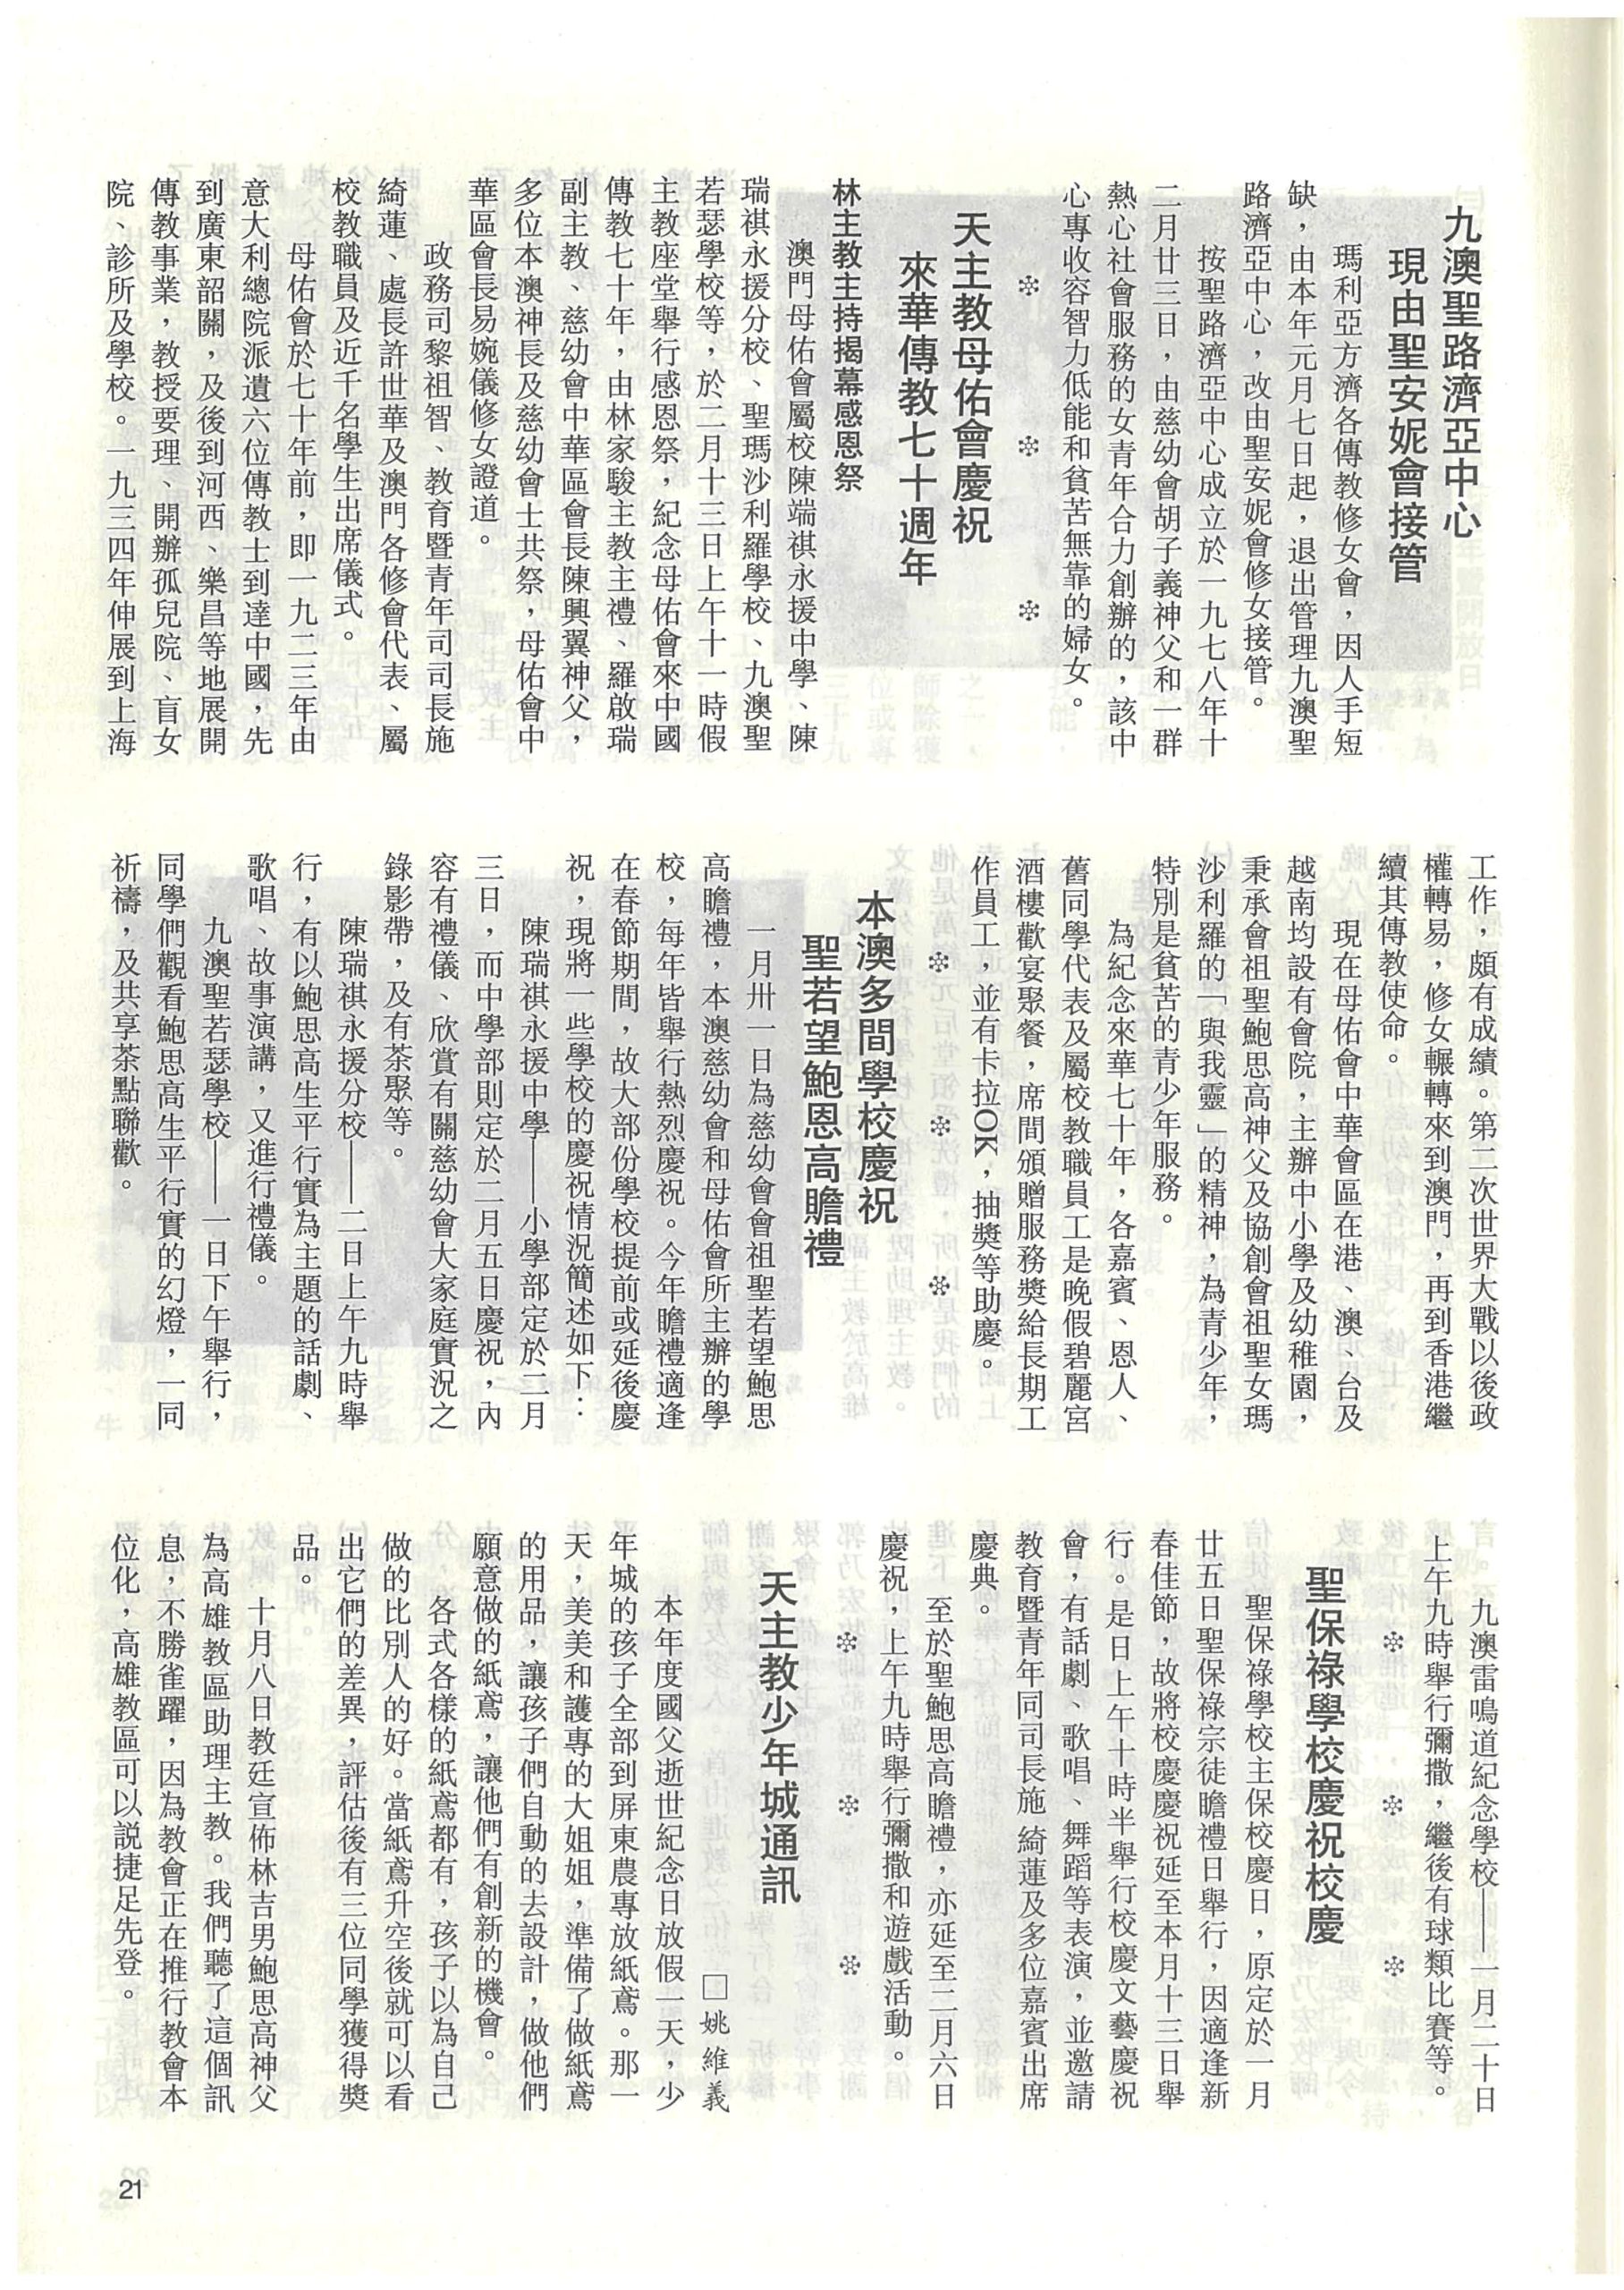 九澳聖路濟亞中心
現由聖安妮會接管
瑪利亞方濟各傳教修女會，因人手短
缺，由本年元月七日起，退出管理九澳聖
路濟亞中心，改由聖安妮會修女接管。
按聖路濟亞中心成立於一九七八年十
二月廿三日，由慈幼會胡子義神父和一群
熱心社會服務的女青年合力創辦的，該中
心專收容智力低能和貧苦無靠的婦女。
❊ ❊ ❊
天主教母佑會慶祝
來華傳教七十週年
林主教主持揭幕感恩祭
澳門母佑會屬校陳端祺永援中學、陳
瑞祺永援分校、聖瑪沙利羅學校、九澳聖
若瑟學校等，於二月十三日上午十一時假
主教座堂舉行感恩祭，紀念母佑會來中國
傳教七十年，由林家駿主教主禮、羅啟瑞
副主教、慈幼會中華區會長陳興翼神父，
多位本澳神長及慈幼會士共祭，母佑會中
華區會長易婉儀修女證道。
政務司黎祖智、教育暨青年司司長施
綺蓮、處長許世華及澳門各修會代表、屬
校教職員及近千名學生出席儀式。
母佑會於七十年前，即一九二三年由
意大利總院派遺六位傳教士到達中國，先
到廣東韶關，及後到河西、樂昌等地展開
傳教事業，教授要理、開辦孤兒院、盲女
院、診所及學校。一九三四年伸展到上海
工作，頗有成績。第二次世界大戰以後政
權轉易，修女輾轉來到澳門，再到香港繼
續其傳教使命。
現在母佑會中華會區在港、澳、台及
越南均設有會院，主辦中小學及幼稚園，
秉承會祖聖鮑思高神父及協創會祖聖女瑪
沙利羅的「與我靈」的精神，為青少年，
特別是貧苦的青少年服務。
為紀念來華七十年，各嘉賓、恩人、
舊同學代表及屬校教職員工是晚假碧麗宮
酒樓歡宴聚餐，席間頒贈服務獎給長期工
作員工，並有卡拉OK，抽獎等助慶。
❊ ❊ ❊
本澳多間學校慶祝
聖若望鮑恩高瞻禮
一月卅一日為慈幼會會祖聖若望鮑思
高瞻禮，本澳慈幼會和母佑會所主辦的學
校，每年皆舉行熱烈慶祝。今年瞻禮適逢
在春節期間，故大部份學校提前或延後慶
祝，現將一些學校的慶祝情況簡述如下：
陳瑞祺永援中學——小學部定於二月
三日，而中學部則定於二月五日慶祝，內
容有禮儀、欣賞有關慈幼會大家庭實況之
錄影帶，及有茶聚等。
陳瑞祺永援分校——二日上午九時舉
行，有以鮑思高生平行實為主題的話劇、
歌唱、故事演講，又進行禮儀。
九澳聖若瑟學校——一日下午舉行，
同學們觀看鮑思高生平行實的幻燈，一同
祈禱，及共享茶點聯歡。
九澳雷鳴道紀念學校——一月二十日
上午九時舉行彌撒，繼後有球類比賽等。
❊ ❊ ❊
聖保祿學校慶祝校慶
聖保祿學校主保校慶日，原定於一月
廿五日聖保祿宗徒瞻禮日舉行，因適逢新
春佳節，故將校慶慶祝延至本月十三日舉
行。是日上午十時半舉行校慶文藝慶祝
會，有話劇、歌唱、舞蹈等表演，並邀請
教育暨青年同司長施 綺蓮及多位嘉賓出席
慶典。
至於聖鮑思高瞻禮，亦延至二月六日
慶祝，上午九時舉行彌撒和遊戲活動。
❊ ❊ ❊
天主教少年城通訊
□姚維義
本年度國父逝世紀念日放假一天，少
年城的孩子全部到屏東農專放紙鳶。那一
天，美美和護專的大姐姐，準備了做紙鳶
的用品，讓孩子們自動的去設計，做他們
願意做的紙鳶，讓他們有創新的機會。
各式各樣的紙鳶都有，孩子以為自己
做的比別人的好。當紙鳶升空後就可以看
出它們的差異，評估後有三位同學獲得獎
品。
十月八日教廷宣佈林吉男鮑思高神父
為高雄教區助理主教。我們聽了這個訊
息，不勝雀躍，因為教會正在推行教會本
位化，高雄教區可以說捷足先登。
21